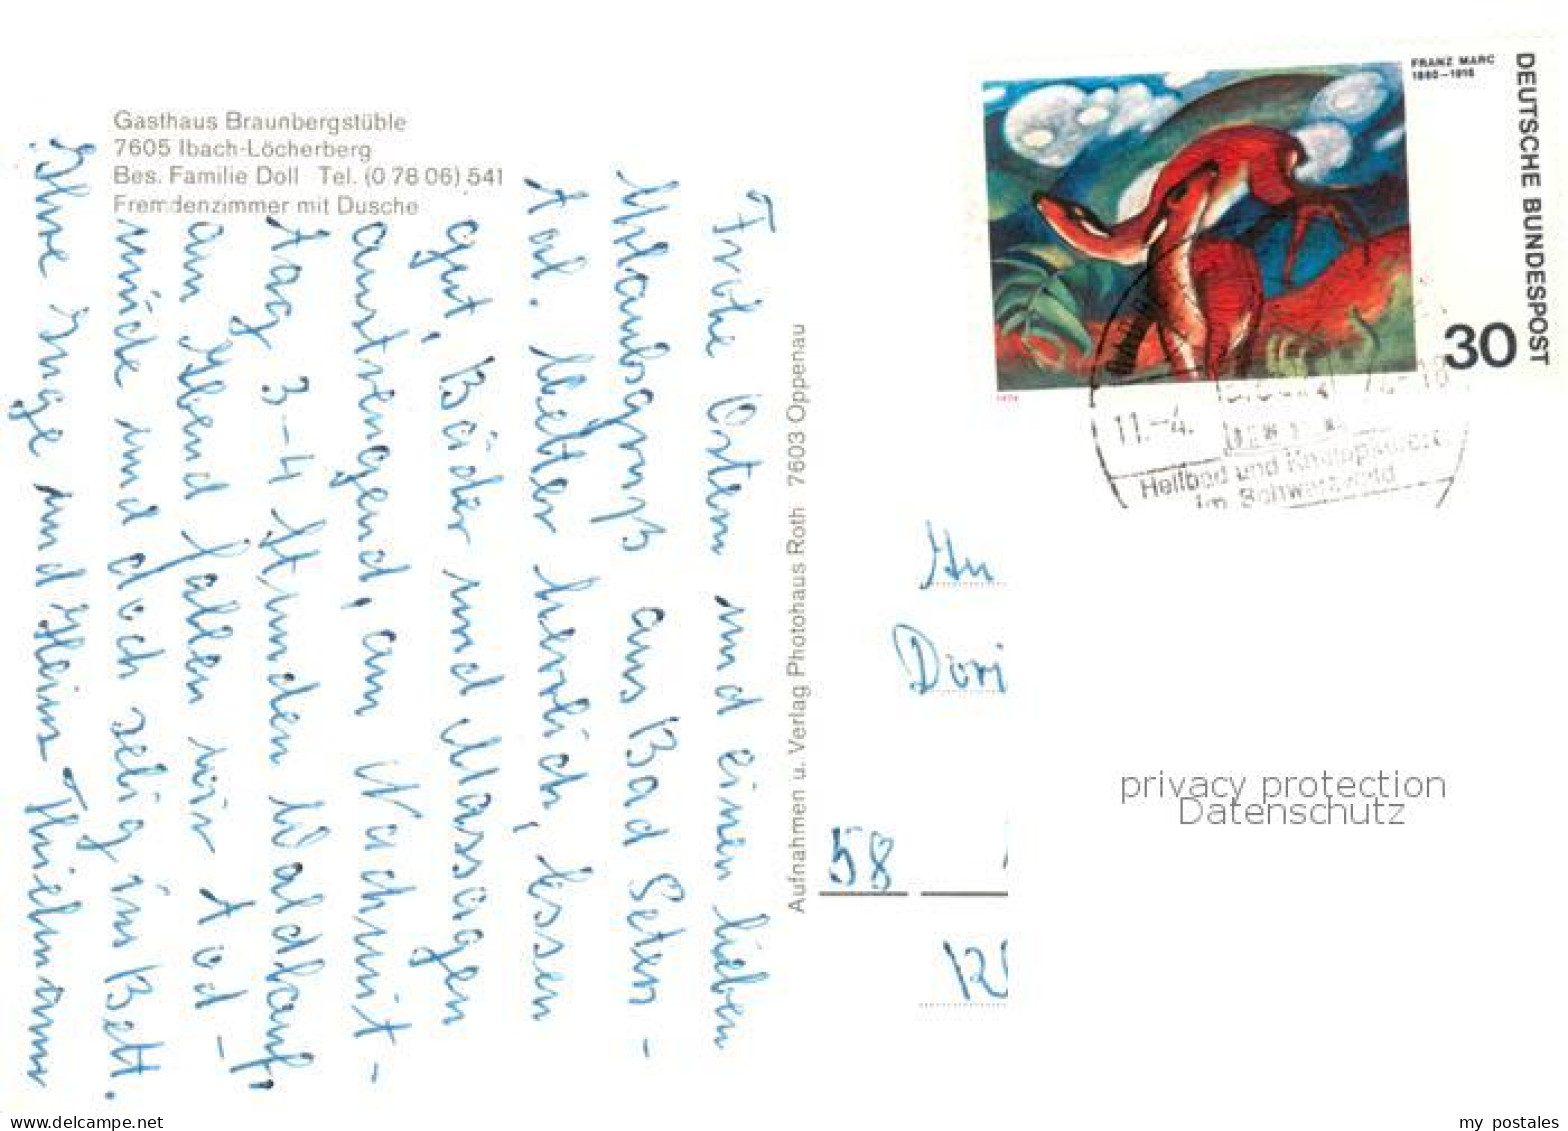 Gasthaus Braunbergstüble
7605 Ibach-Löcherberg
Bes. Familie Doll Tel. (0 78 06) 541
Fremdenzimmer mit Dusche
Frohe Ostern und einen lieben
Urlaubsgruß aus Bad Seter-
tal. Wetter herrlich, Essen
gut, Bäder und Massagen
anstrengend, am Nachmit-
tag 3-4 Stunden Waldlauf,
am Abend fallen wir tod-
müde und doch selig ins Bett.
Ihre Inge und Heinz Thielmann
Aufnahmen u. Verlag Photohaus Roth 7603 Oppenau
FRANZ MARC
1880–1916
DEUTSCHE BUNDESPOST
30
1974
11.-4.
-18
Heilbad und Kneippkurort
im Schwarzwald
An
Dori
58
privacy protection
Datenschutz
www.delcampe.net
my_postales